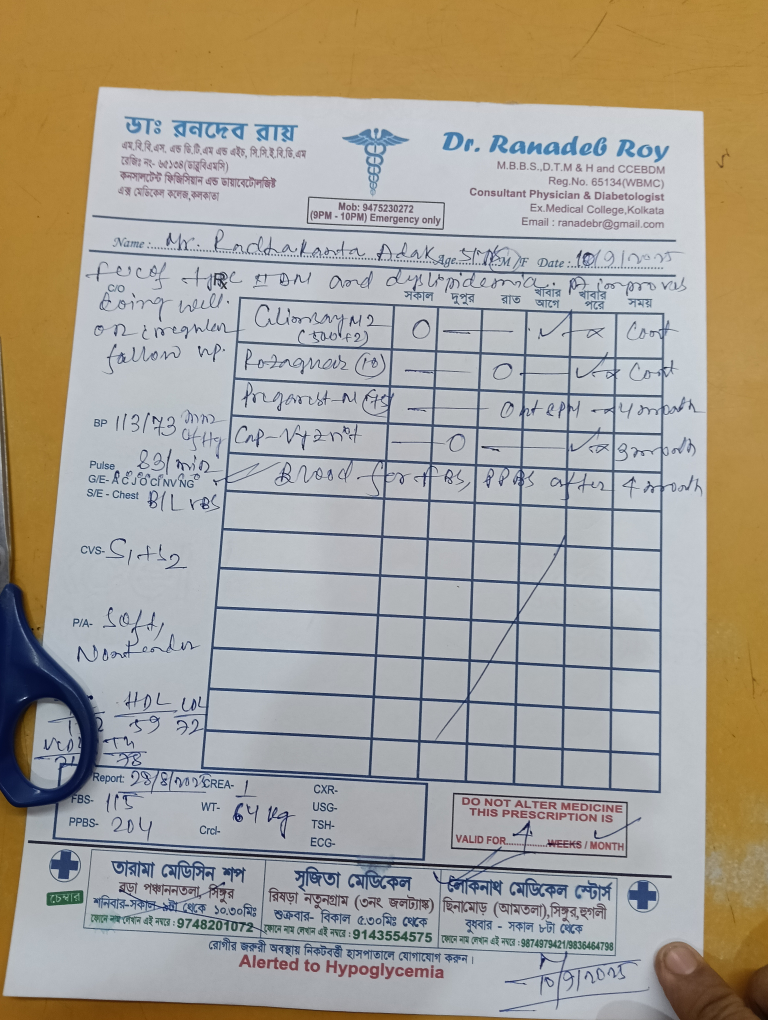 ডাঃ রনদেব রায়
এম.বি.বি.এস. এন্ড ডি.টি.এম এন্ড এইচ, সি.সি.ই.বি.ডি.এম
রেজিঃ নং- ৬৫১৩৪(ডাব্লুবিএমসি)
কনসালটেন্ট ফিজিসিয়ান এন্ড ডায়াবেটোলজিষ্ট
এক্স মেডিকেল কলেজ,কলকাতা
Mob: 9475230272
(9PM - 10PM) Emergency only
Dr. Ranadeb Roy
M.B.B.S.,D.T.M & H and CCEBDM
Reg.No. 65134(WBMC)
Consultant Physician & Diabetologist
Ex.Medical College,Kolkata
Email : ranadebr@gmail.com
Name : Mr. Radhakanta Adak Age M/F Date : 10/9/2025
DM and dyslipidemia.
C/O
doing well.
on irregular
follow up.
সকাল দুপুর রাত খাবার আগে খাবার পরে সময়
M2 (500+2) O — — ✓ Cont
(10) — O ✓ Cont
(75) — O 4 month
Cap — O — ✓ 3 month
Blood for FBS, PPBS after 4 month
BP 113/73 mm of Hg
Pulse 83/min
G/E-
S/E - Chest B/L VBS
CVS- S1+S2
P/A- Soft,
Nontender
HDL LDL
59 72
78
Report: 28/8/2025 CREA- 1 CXR-
FBS- 115 WT- 64 kg USG-
PPBS- 204 Crcl- TSH-
ECG-
DO NOT ALTER MEDICINE
THIS PRESCRIPTION IS
VALID FOR 4 WEEKS / MONTH
চেম্বার
তারামা মেডিসিন শপ
বড়া পঞ্চাননতলা, সিঙ্গুর
শনিবার-সকাল ৮টা থেকে ১০.৩০মিঃ
ফোনে নাম লেখান এই নম্বরে : 9748201072
সৃজিতা মেডিকেল
রিষড়া নতুনগ্রাম (৩নং জলট্যাঙ্ক)
শুক্রবার- বিকাল ৫.৩০মিঃ থেকে
ফোনে নাম লেখান এই নম্বরে : 9143554575
লোকনাথ মেডিকেল স্টোর্স
ছিনামোড় (আমতলা),সিঙ্গুর,হুগলী
বুধবার - সকাল ৮টা থেকে
ফোনে নাম লেখান এই নম্বরে : 9874979421/9836464798
রোগীর জরুরী অবস্থায় নিকটবর্তী হাসপাতালে যোগাযোগ করুন।
Alerted to Hypoglycemia
10/9/2025